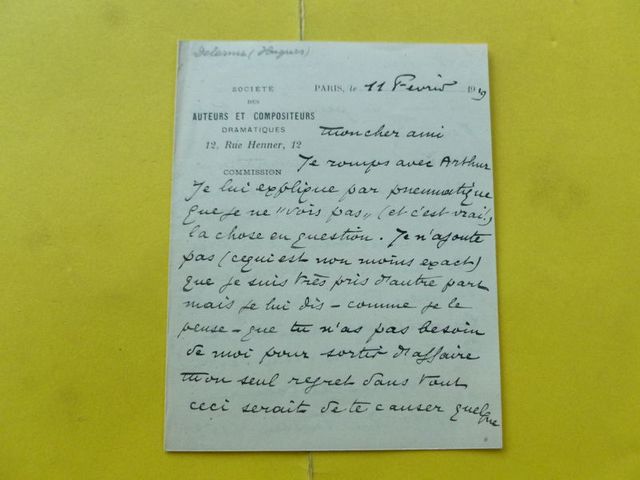 Delorme (Hugues)
SOCIÉTÉ
DES
AUTEURS ET COMPOSITEURS
DRAMATIQUES
12, Rue Henner, 12
COMMISSION
PARIS, le 11 Février 1919
Mon cher ami
Je romps avec Arthur
Je lui explique par pneumatique
que je ne "vois pas" (et c'est vrai!)
la chose en question. Je n'ajoute
pas (ce qui est non moins exact)
que je suis très pris d'autre part
mais je lui dis - comme je le
pense - que tu n'as pas besoin
de moi pour sortir d'affaire
Mon seul regret dans tout
ceci serait de te causer quelque